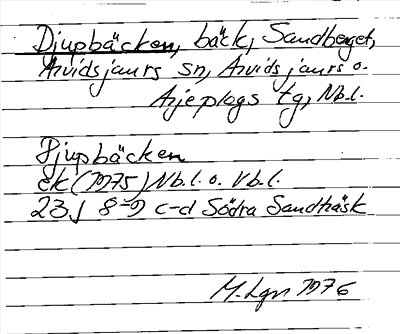 Djupbäcken, bäck, Sandberget,
Arvidsjaurs sn, Arvidsjaurs o.
Arjeplogs tg, Nb.l.
Djupbäcken
ek (1975) Nb.l. o. Vb.l.
23J 8-9 c-d Södra Sandträsk
M. Lgn 1976